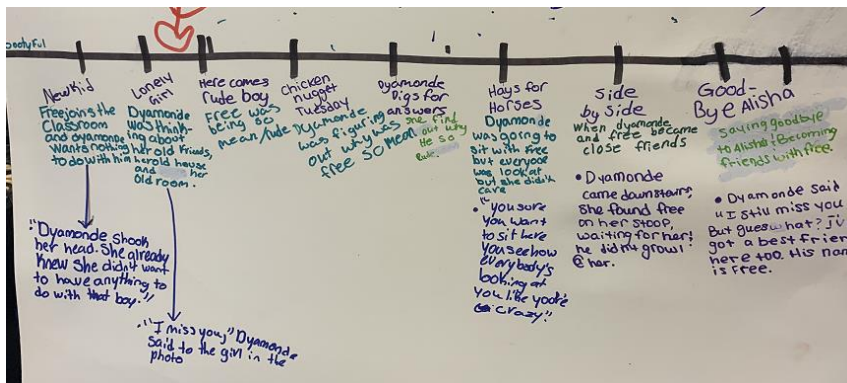 New Kid
Free joins the
Classroom
and Dyamonde
Wants nothing
to do with him
"Dyamonde shook
her head. She already
knew she didn't want
to have anything to
do with that boy."
Lonely
Girl
Dyamonde
was think-
ing about
her old friends,
her old house
and her
old room.
"I miss you," Dyamonde
said to the girl in the
photo
Here comes
rude boy
Free was
being so
mean/rude
Chicken
nugget
Tuesday
Dyamonde
was figuring
out why was
free so mean
Dyamonde
Digs for
answers
she find
out why
He so
Rude
Hays for
Horses
Dyamonde
was going to
sit with Free
but everyone
was look at
but she didn't
care
"you sure
you want
to sit here
you see how
everybody's
looking at
you like you're
crazy".
Side
by Side
When dyamonde
and free became
close friends
• Dyamonde
came downstairs,
she found free
on her stoop,
waiting for her!
he didn't growl
@ her.
Good-
Bye Alisha
saying goodbye
to Alisha! Becoming
friends with free.
• Dyamonde said
"I still miss you
But guess what?
got a best frien
here too. His nam
is Free.